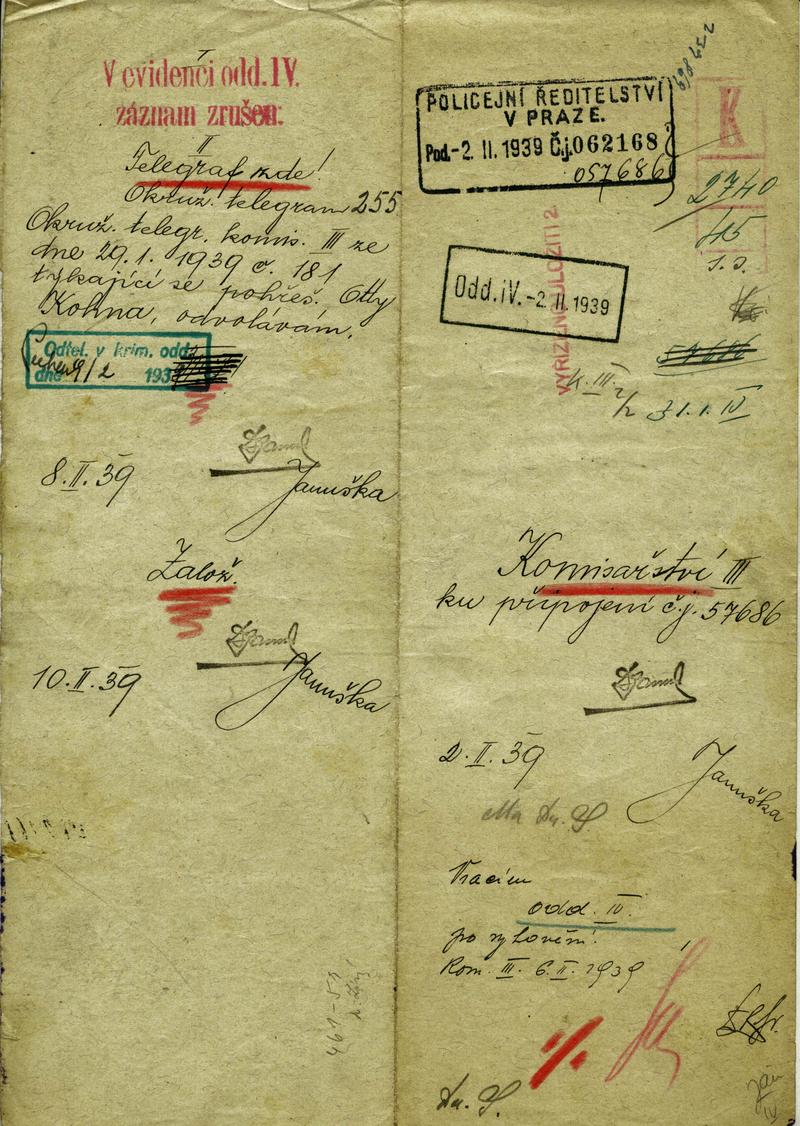 V evidenci odd. IV.
záznam zrušen.
I
II
Telegraf zde!
Okruž. telegram 255
Okruž. telegr. komis. III ze
dne 29.1. 1939 č. 181
týkající se pohřeš. Otty
Kohna, odvolávám.
Odtel. v krim. odd.
dne 9/2 193
8.II.39
Januška
Založ.
10.II.39
Januška
POLICEJNÍ ŘEDITELSTVÍ
V PRAZE.
Pod. -2. II. 1939 Č.j. 062168
057686
K
2740
45
Odd. IV. -2. II. 1939
VYŘÍZENO ULOŽITI 2.
K. III.
2/2
31.1. IV
Komisařství III
ku připojení č.j. 57686
2.II.39
Januška
Vracím
odd. IV.
po vyhovění.
Kom. III. 6.II.1939